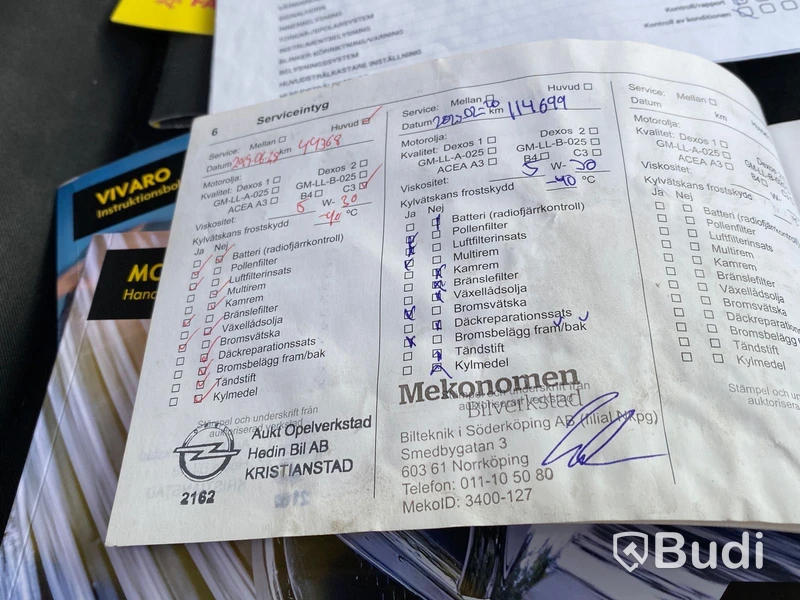 Kontroll/rapport
Kontroll av konditionen
INSTRUMENTBELYSNING
BELYSNINGSSYSTEM
HUVUDSTRÅLKASTARE INSTÄLLNING
VIVARO
Instruktionsbok
MO
Hand
6 Serviceintyg
Service: Mellan Huvud
Datum km 44368
Motorolja:
Kvalitet: Dexos 1 Dexos 2
GM-LL-A-025 GM-LL-B-025
ACEA A3 B4 C3
Viskositet: 5 W- 30
Kylvätskans frostskydd -40 °C
Ja Nej
Batteri (radiofjärrkontroll)
Pollenfilter
Luftfilterinsats
Multirem
Kamrem
Bränslefilter
Växellådsolja
Bromsvätska
Däckreparationssats
Bromsbelägg fram/bak
Tändstift
Kylmedel
Stämpel och underskrift från
auktoriserad verkstad
Aukt Opelverkstad
Hedin Bil AB
KRISTIANSTAD
2162
Service: Mellan Huvud
Datum km 114699
Motorolja:
Kvalitet: Dexos 1 Dexos 2
GM-LL-A-025 GM-LL-B-025
ACEA A3 B4 C3
Viskositet: 5 W- 30
Kylvätskans frostskydd -40 °C
Ja Nej
Batteri (radiofjärrkontroll)
Pollenfilter
Luftfilterinsats
Multirem
Kamrem
Bränslefilter
Växellådsolja
Bromsvätska
Däckreparationssats
Bromsbelägg fram/bak
Tändstift
Kylmedel
Mekonomen
Bilverkstad
Bilteknik i Söderköping AB (filial Nkpg)
Smedbygatan 3
603 61 Norrköping
Telefon: 011-10 50 80
MekoID: 3400-127
Service: Mellan
Datum
Motorolja:
Kvalitet: Dexos 1
GM-LL-A-025
ACEA A3
Viskositet:
Kylvätskans frostskydd
Ja Nej
Batteri (radiofjärrkon
Pollenfilter
Luftfilterinsats
Multirem
Kamrem
Bränslefilter
Växellådsolja
Bromsvätska
Däckreparations
Bromsbelägg fra
Tändstift
Kylmedel
Stämpel och unders
auktoriserad
Budi